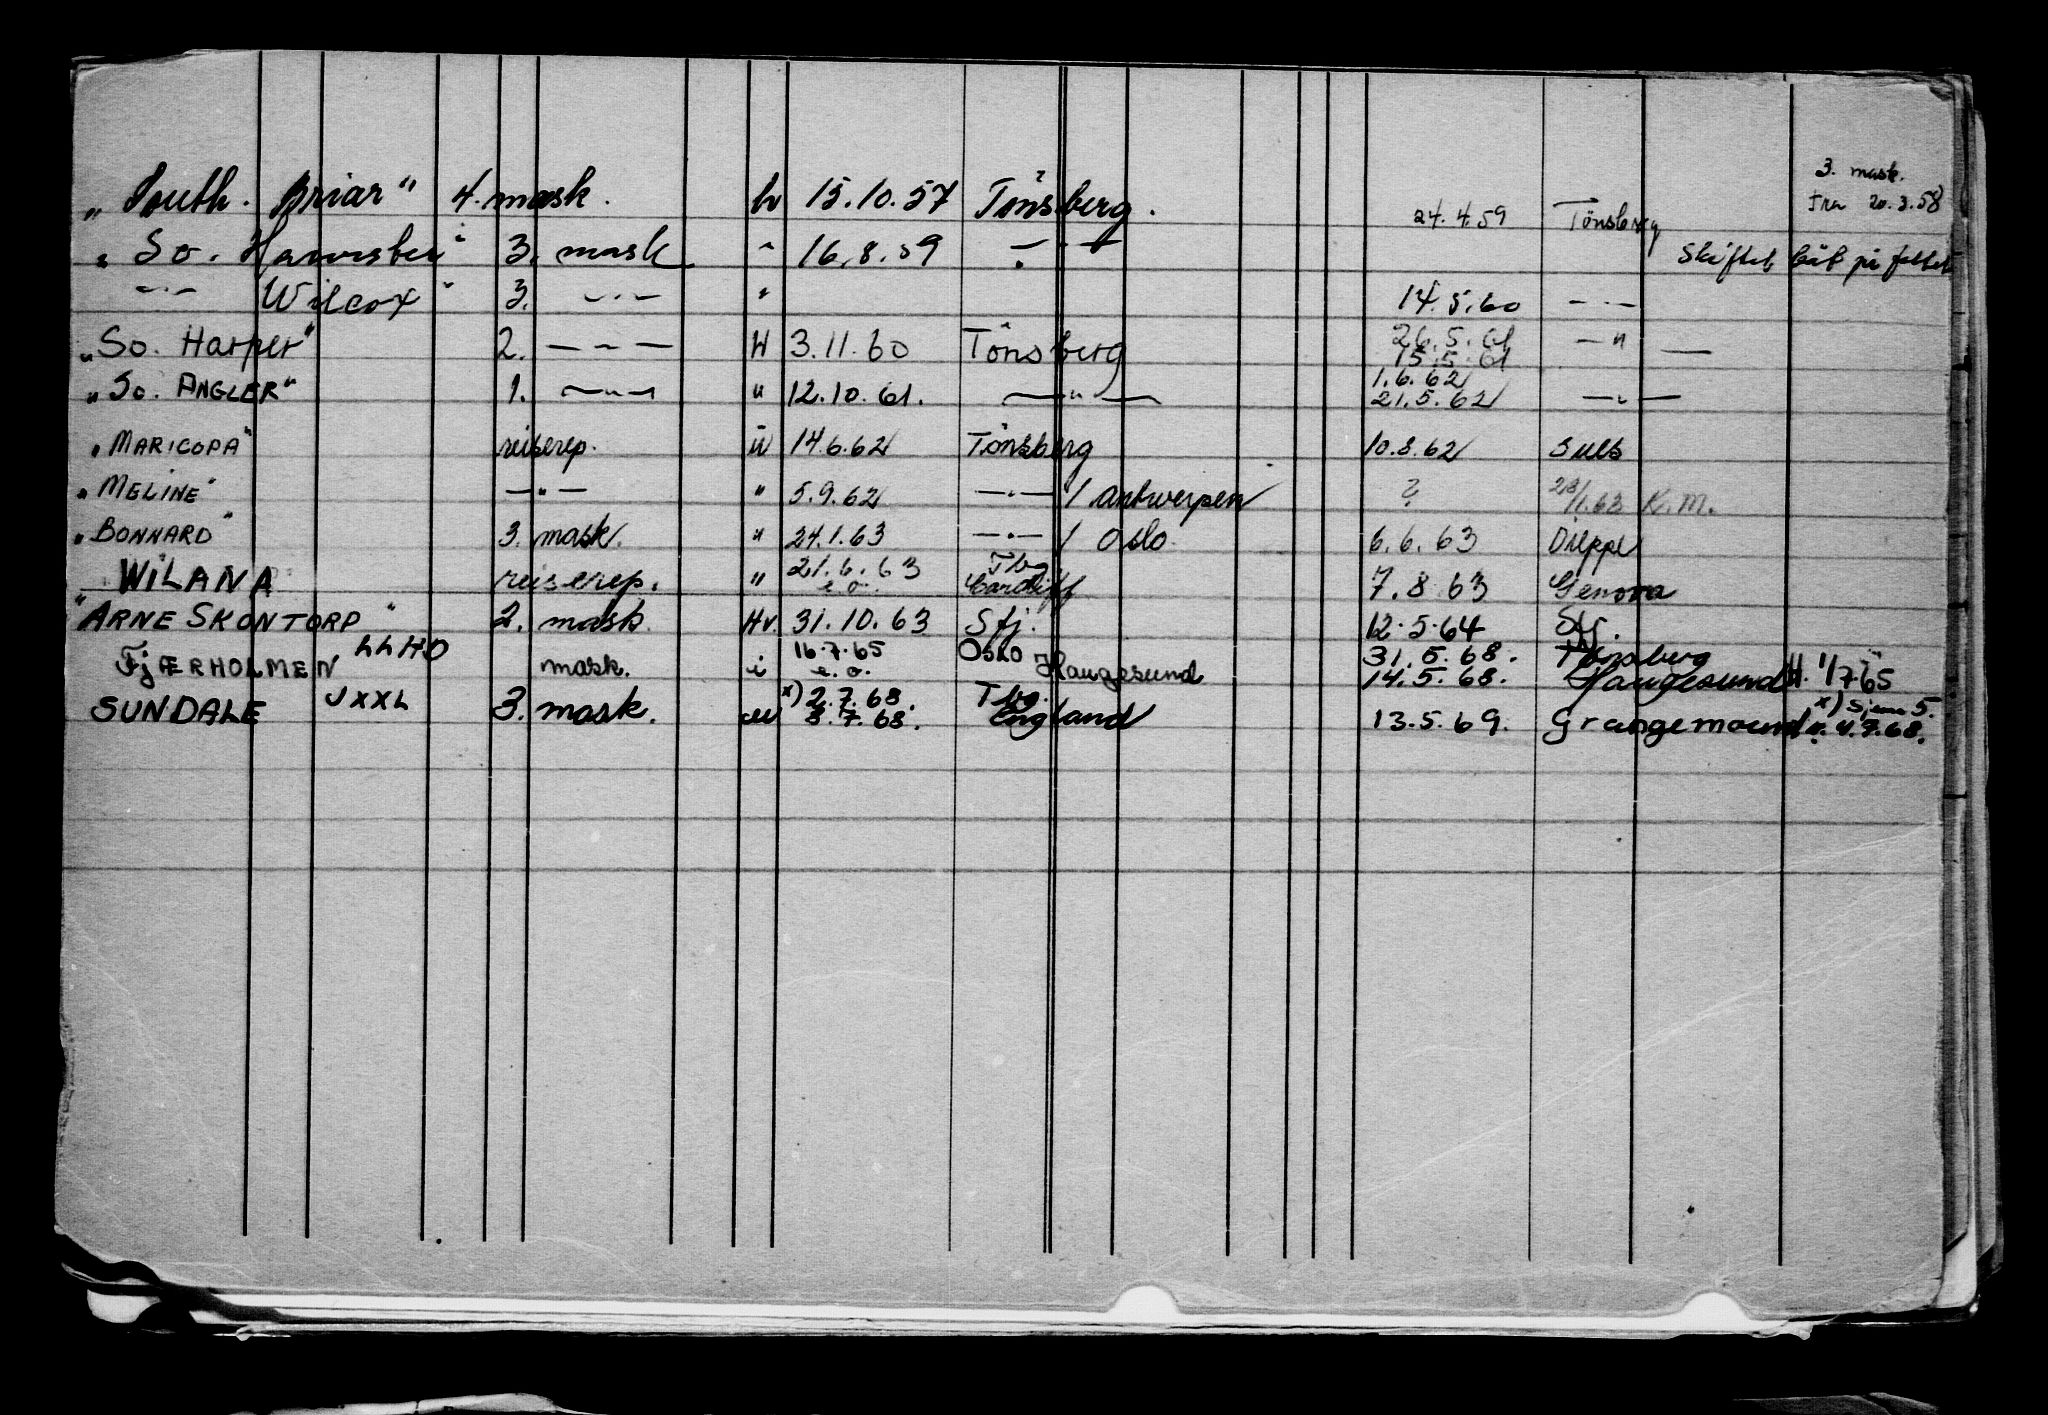 3. mask.
"South. Briar" 4. mask. h 15.10.57 Tønsberg. 24.4.59 Tønsberg fra 20.3.58
"So. Harvester" 3. mask " 16.8.59 — " — Skiftet båt på feltet
— " — Wilcox" 3. — " — " 14.5.60 — " —
"So. Harper" 2. — " — H 3.11.60 Tönsberg 26.5.61 — " —
15.5.61
"So. ANGLER" 1. — " — " 12.10.61. — " — 1.6.62
21.5.62 — " —
"MARICOPA" reiserep. u 14.6.62 Tönsberg 10.8.62 Sues
"MELINE" — " — " 5.9.62 — " — / antwerpen ? 23/1.63 K.M.
"BONNARD" 3. mask. " 24.1.63 — " — / Oslo 6.6.63 Dieppe
"WILANA reiserep. " 21.6.63 Tbg 7.8.63 Genova
e.o. Cardiff
"ARNE SKONTORP" 2. mask. Hv. 31.10.63 Sfj. 12.5.64 Sfj.
FJÆRHOLMEN LLHO mask. i 16.7.65 Oslo 31.5.68. Tönsberg
e.o. Haugesund 14.5.68. Haugesund H. 1/7.65
SUNDALE JXXL 3. mask. uv x) 2.7.68. Tbg. x) Sjem 5.
3.7.68. England 13.5.69. Grangemound 4.7.68.